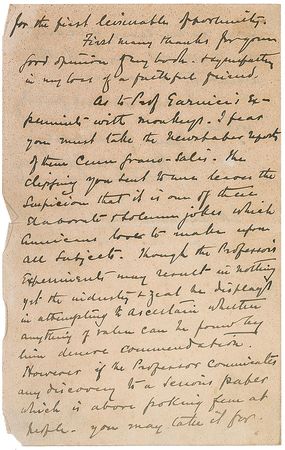 for the first leisurable opportunity.
First many thanks for your
good opinion of my book. & sympathy
in my loss of a faithful friend.
As to Prof Garnier's Ex-
periments with monkeys. I fear
you must take the newspaper reports
of them Cum grano-Salis. The
clipping you sent to me leaves the
Suspicion that it is one of these
Elaborate & solemn jokes which
Americans love to make upon
all subjects. Though the Professor's
Experiments may result in nothing
yet the industry & zeal he displays
in attempting to ascertain whether
anything of value can be found by
him deserve commendation.
However if the Professor communicates
any discovery to a serious paper
which is above poking fun at
people. you may take it for